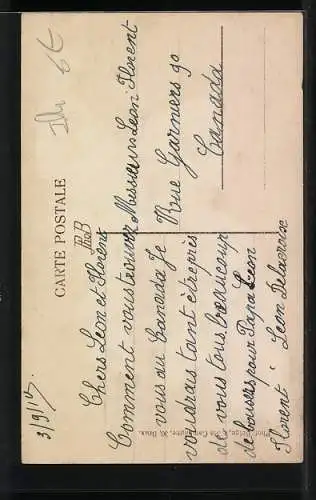 CARTE POSTALE
PhoB
3/9/13
Chers Leon et Florent
Comment vous trouvez
vous au Canada Je
voudrais tant être près
de vous tous beaucoup
de bouses pour Papa Leon
Florent i Leon Delacroise
Messieurs Leon Florent
Rue Garniers 90
Canada